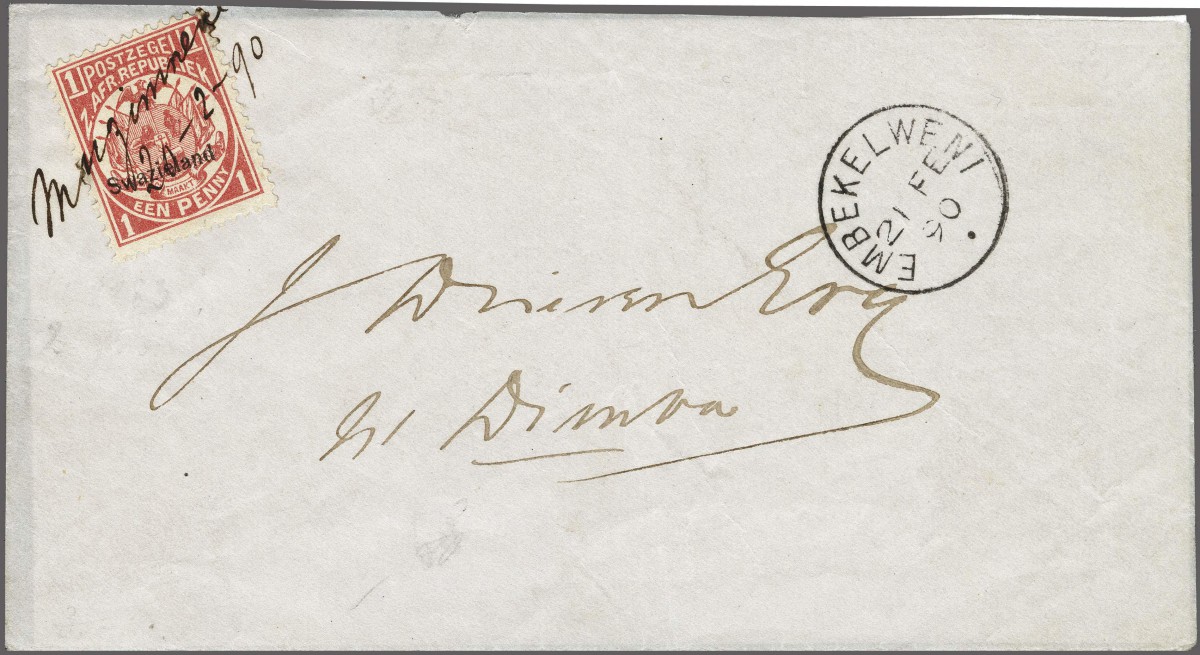 1 POSTZEGEL 1
Z. AFR. REPUBLIEK
Swazieland
MAAKT
EEN PENNY
1 1
20-2-90
EMBEKELWENI
21 FE
90
J Driesen Esq
Dimba